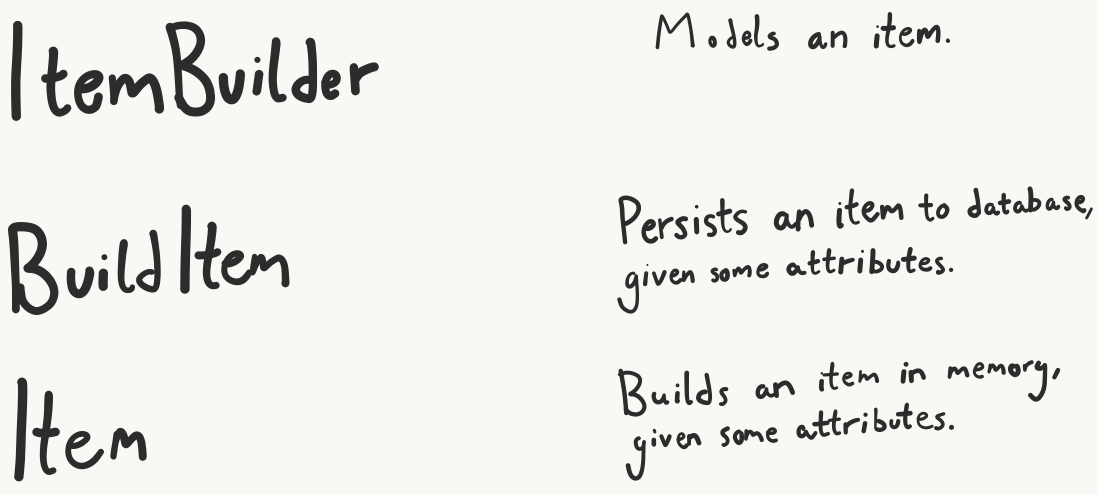 ItemBuilder
Models an item.
BuildItem
Persists an item to database,
given some attributes.
Item
Builds an item in memory,
given some attributes.